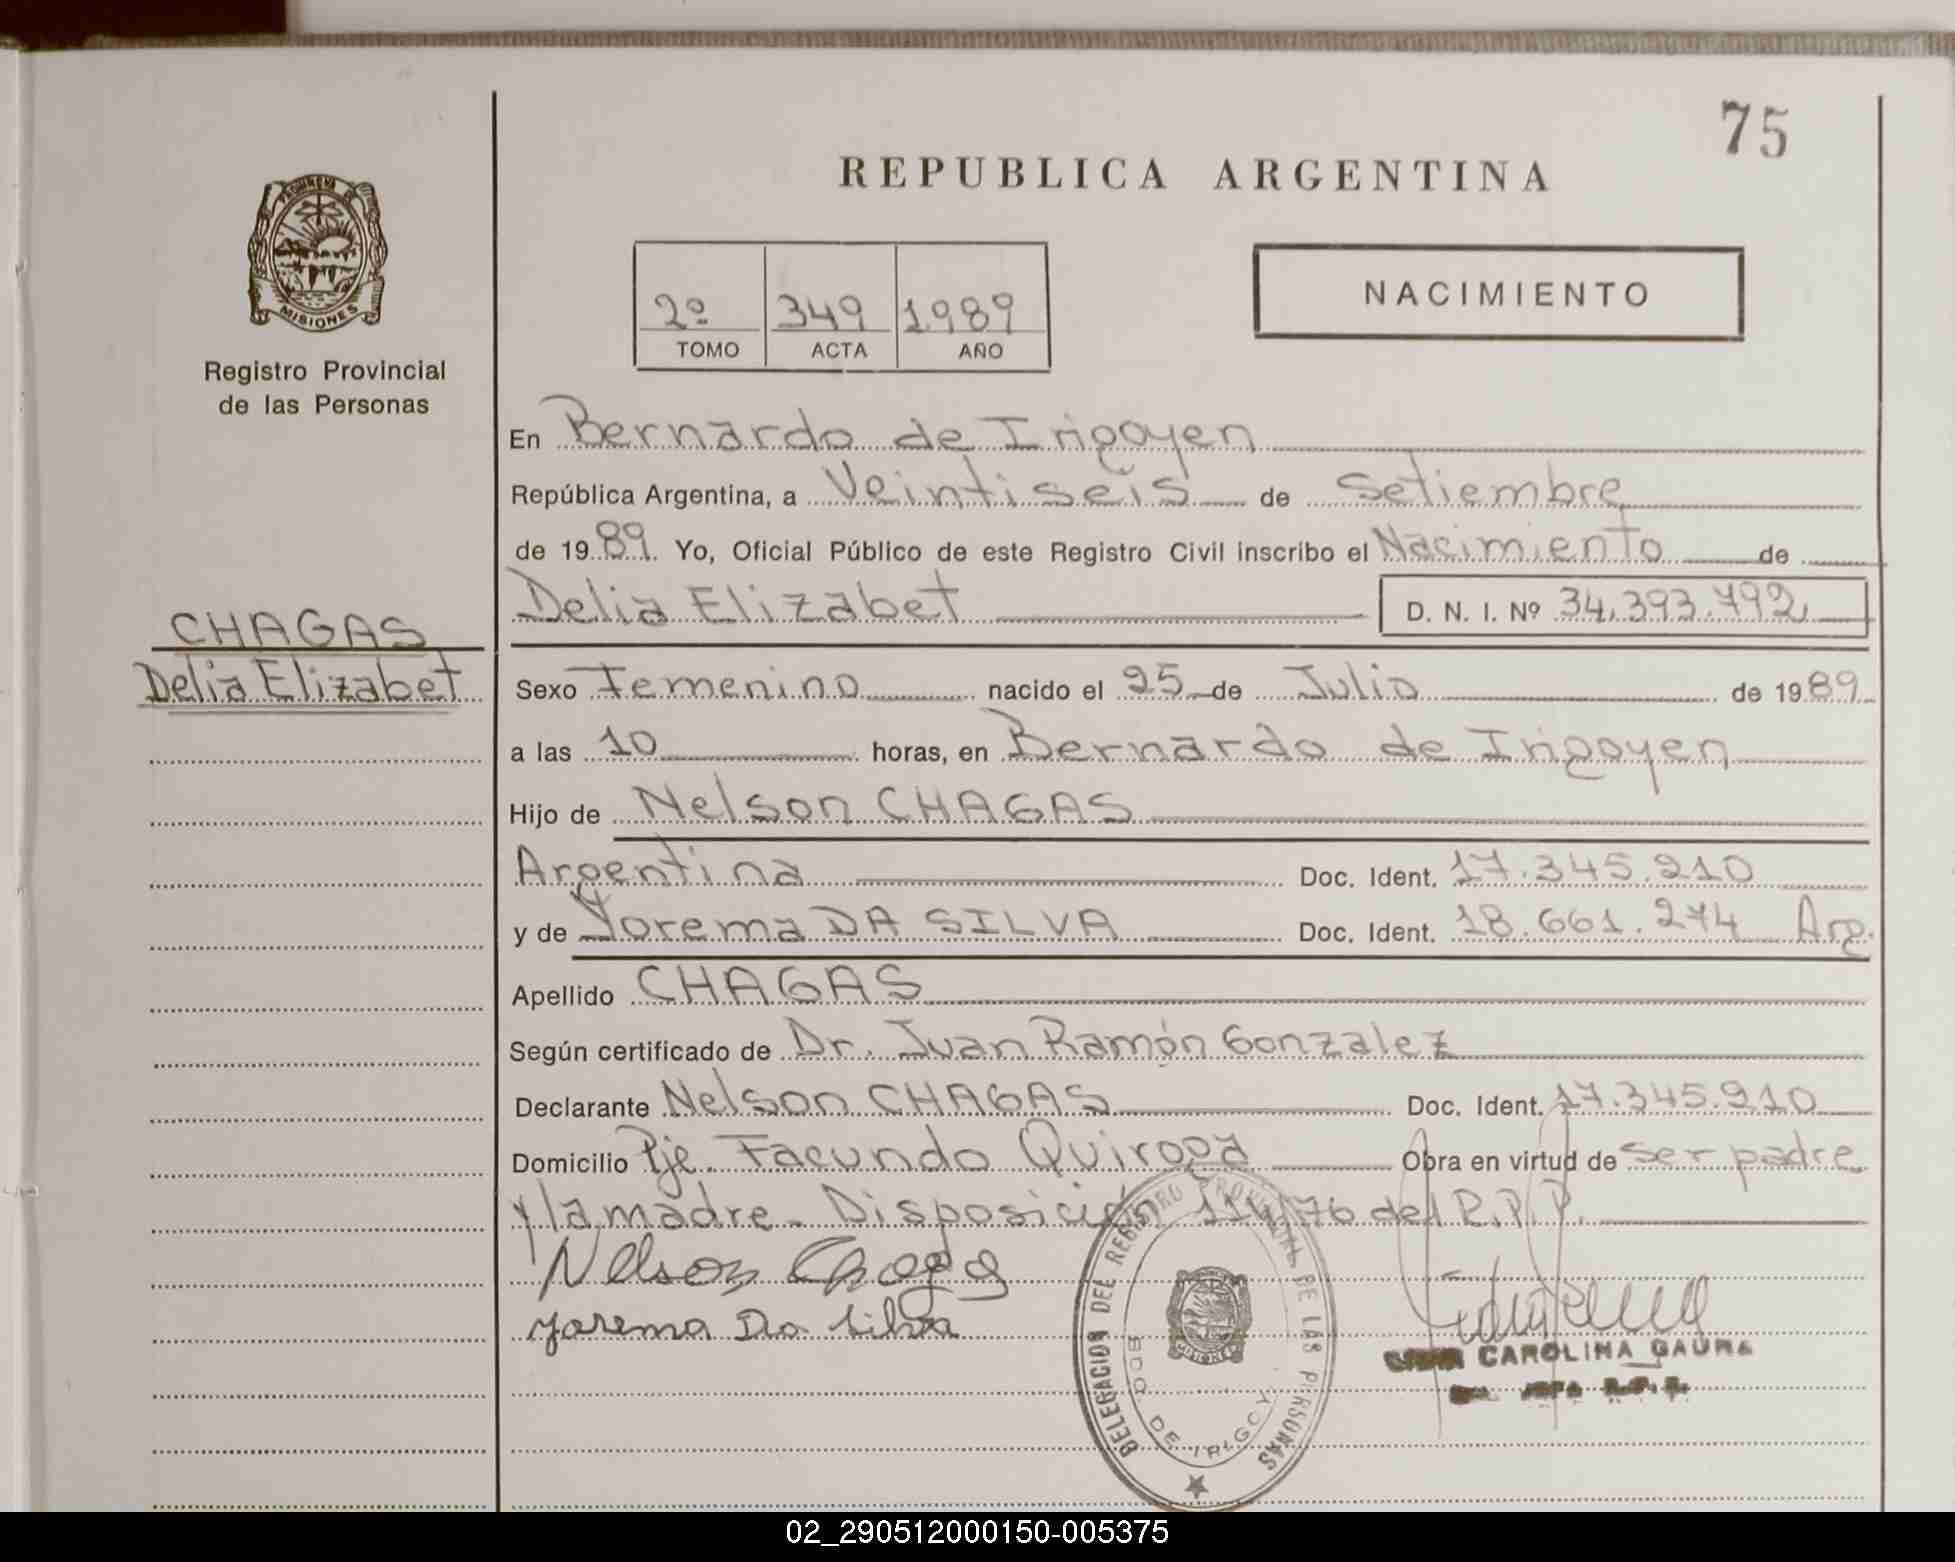 75
REPUBLICA ARGENTINA
PROVINCIA DE
MISIONES
Registro Provincial
de las Personas
2º 349 1989
TOMO ACTA AÑO
NACIMIENTO
En Bernardo de Irigoyen
República Argentina, a Veintiseis de Setiembre
de 1989. Yo, Oficial Público de este Registro Civil inscribo el Nacimiento de
Delia Elizabet D. N. I. Nº 34.393.792
CHAGAS
Delia Elizabet
Sexo Femenino nacido el 25 de Julio de 1989
a las 10 horas, en Bernardo de Irigoyen
Hijo de Nelson CHAGAS
Argentina Doc. Ident. 17.345.910
y de Yorema DA SILVA Doc. Ident. 18.661.274 Arg.
Apellido CHAGAS
Según certificado de Dr. Juan Ramón Gonzalez
Declarante Nelson CHAGAS Doc. Ident. 17.345.910
Domicilio Pje. Facundo Quiroga Obra en virtud de ser padre
y la madre. Disposición 114/76 del R.P.P.
Nelson Chagas
Yorema Da Silva
DELEGACION DEL REGISTRO PROVINCIAL DE LAS PERSONAS
BDO. DE IRIGOY.
MISIONES
CAROLINA GAUNA
JEFA
02_290512000150-005375